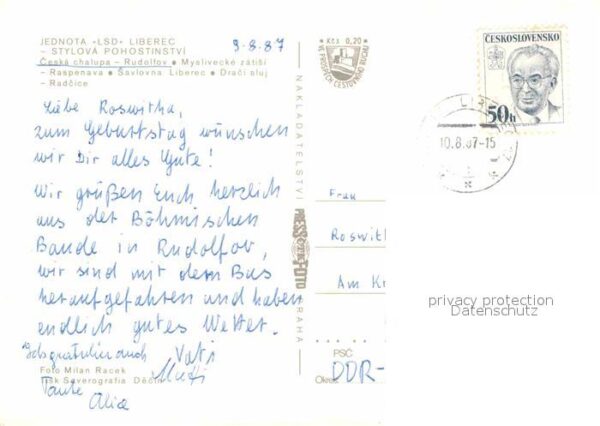 JEDNOTA »LSD« LIBEREC
– STYLOVÁ POHOSTINSTVÍ
Česká chalupa – Rudolfov • Myslivecké zátiší
– Raspenava • Šavlovna Liberec • Dračí sluj
– Radčice
9.8.87
Liebe Roswitha,
zum Geburtstag wünschen
wir Dir alles Gute!
Wir grüßen Euch herzlich
aus der Böhmischen
Baude in Rudolfov,
wir sind mit dem Bus
heraufgefahren und haben
endlich gutes Wetter.
Ich gratuliere auch Vati
Mutti
Tante
Alice
Foto Milan Racek
Tisk Severografia Děčín
NAKLADATELSTVÍ
PRESSFOTO
PRAHA
Kčs 0,20
VE PROSPĚCH CESTOVNÍHO RUCHU
ČESKOSLOVENSKO
50h
10.8.87-15
Frau
Roswith
Am K
PSČ
DDR-
Okres
privacy protection
Datenschutz